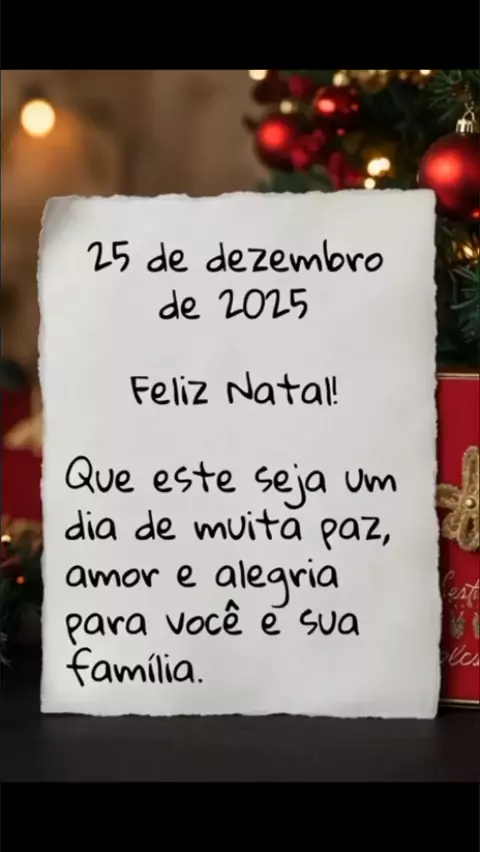 25 de dezembro
de 2025
Feliz Natal!
Que este seja um
dia de muita paz,
amor e alegria
para você e sua
família.